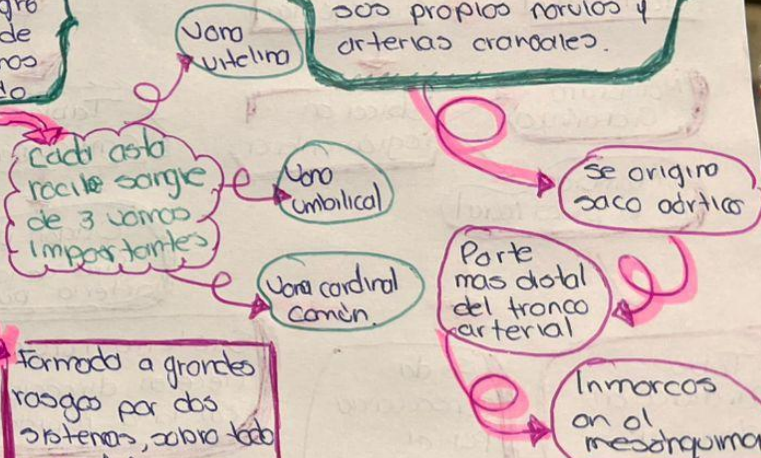 gre
de
nos
to
Vena
vitelina
sus propios nervios y
arterias craneales.
Cada asta
recibe sangre
de 3 venas
importantes
Vena
umbilical
Vena cardinal
común.
Se origina
saco aórtico
Parte
mas distal
del tronco
arterial
Inmersos
en el
mesénquima
Formado a grandes
rasgos por dos
sistemas, sobre todo